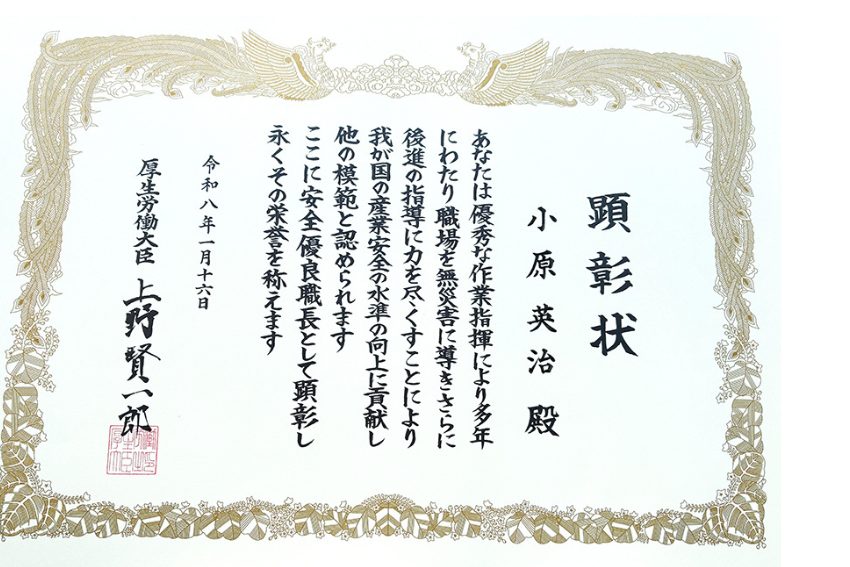 顕彰状
小原英治殿
あなたは優秀な作業指揮により多年
にわたり職場を無災害に導きさらに
後進の指導に力を尽くすことにより
我が国の産業安全の水準の向上に貢献し
他の模範と認められます
ここに安全優良職長として顕彰し
永くその栄誉を称えます
令和八年一月十六日
厚生労働大臣 上野賢一郎